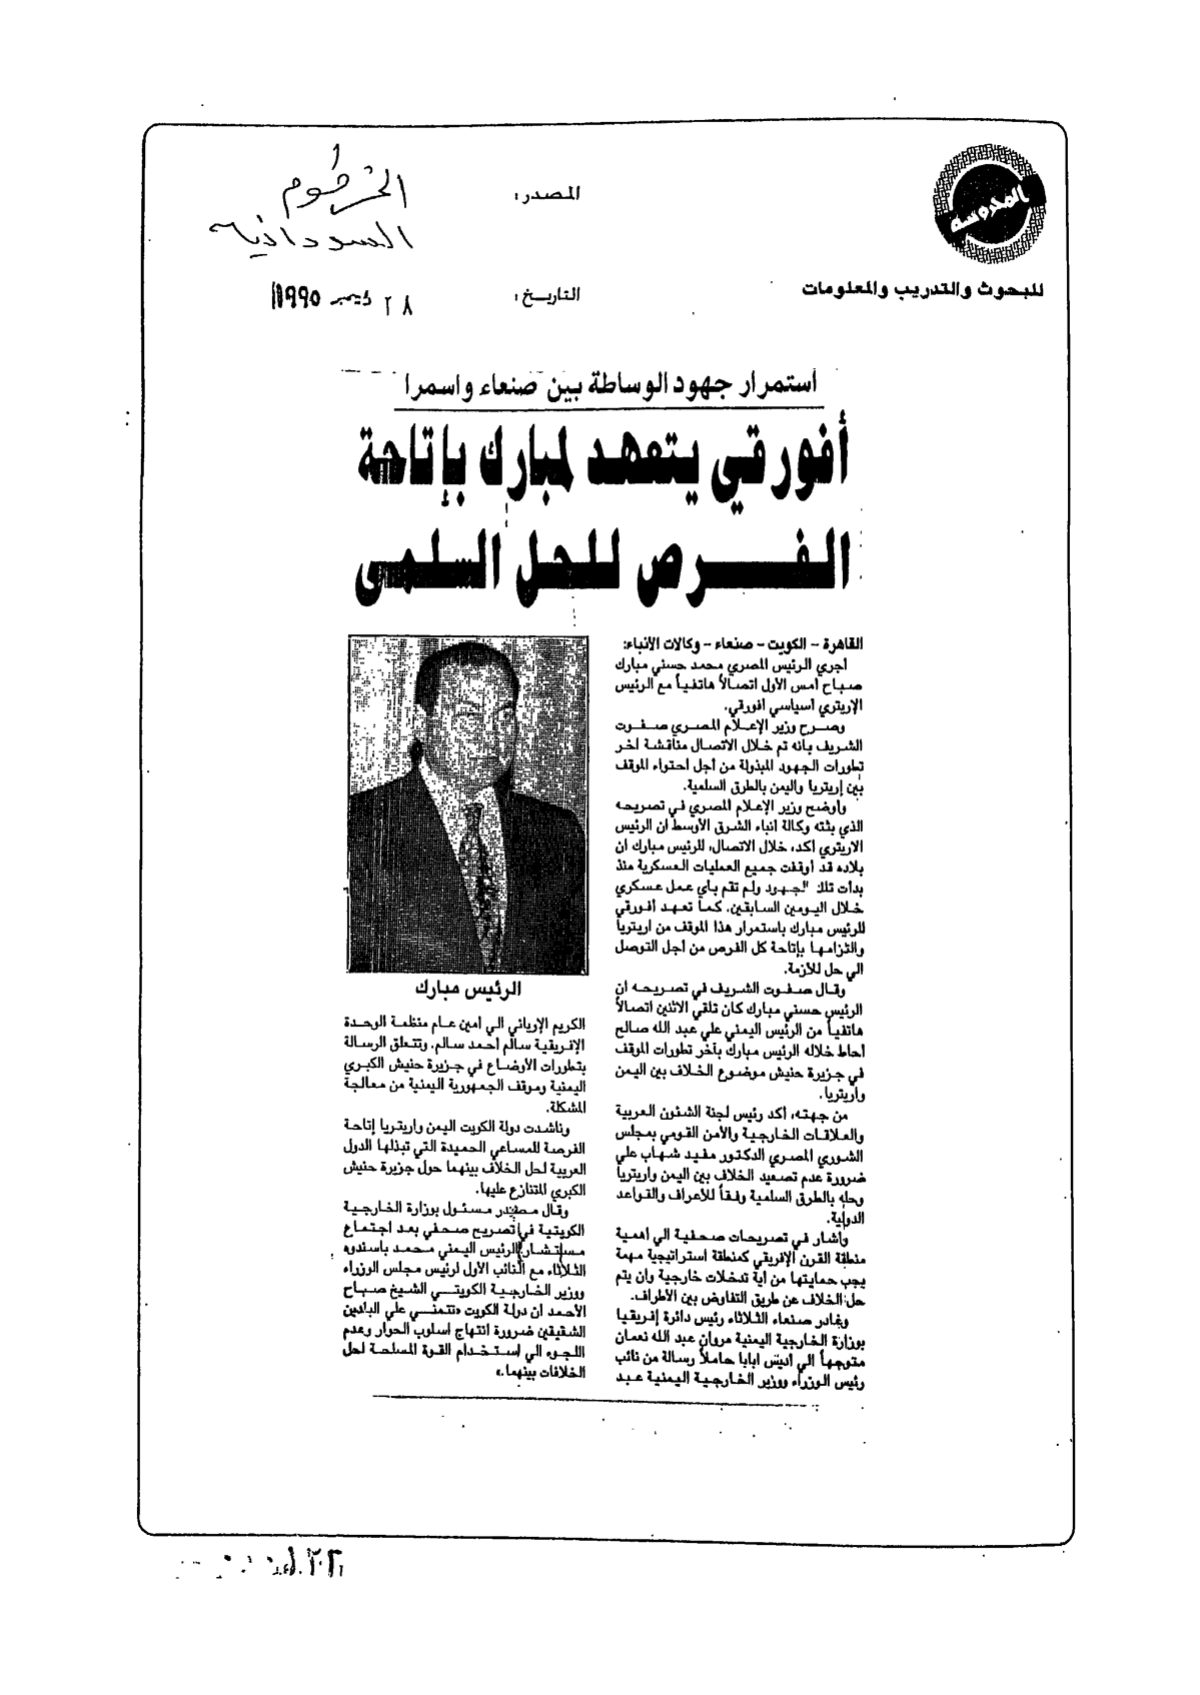 المحروسة
للبحوث والتدريب والمعلومات
المصدر:
الخرطوم
السودانية
التاريخ:
٢٨ ديسمبر ١٩٩٥
استمرار جهود الوساطة بين صنعاء واسمرا
أفورقي يتعهد لمبارك بإتاحة
الفرص للحل السلمى
القاهرة - الكويت - صنعاء - وكالات الأنباء:
اجري الرئيس المصري محمد حسني مبارك
صباح امس الأول اتصالاً هاتفياً مع الرئيس
الإريتري اسياسي افورقي.
وصرح وزير الإعلام المصري صفوت
الشريف بانه تم خلال الاتصال مناقشة اخر
تطورات الجهود المبذولة من اجل احتواء الموقف
بين إريتريا واليمن بالطرق السلمية.
واوضح وزير الإعلام المصري في تصريحه
الذي بثته وكالة انباء الشرق الأوسط ان الرئيس
الاريتري اكد، خلال الاتصال، للرئيس مبارك ان
بلاده قد أوقفت جميع العمليات العسكرية منذ
بدأت تلك الجهود ولم تقم بأي عمل عسكري
خلال اليومين السابقين. كما تعهد أفورقي
للرئيس مبارك باستمرار هذا الموقف من اريتريا
والتزامها بإتاحة كل الفرص من أجل التوصل
الي حل للازمة.
وقال صفوت الشريف في تصريحه ان
الرئيس حسني مبارك كان تلقي الاثنين اتصالاً
هاتفياً من الرئيس اليمني علي عبد الله صالح
أحاط خلاله الرئيس مبارك بآخر تطورات الموقف
في جزيرة حنيش موضوع الخلاف بين اليمن
واريتريا.
من جهته، اكد رئيس لجنة الشئون العربية
والعلاقات الخارجية والأمن القومي بمجلس
الشوري المصري الدكتور مفيد شهاب علي
ضرورة عدم تصعيد الخلاف بين اليمن واريتريا
وحله بالطرق السلمية وفقاً للأعراف والقواعد
الدولية.
وأشار في تصريحات صحفية الي اهمية
منطقة القرن الإفريقي كمنطقة استراتيجية مهمة
يجب حمايتها من اية تدخلات خارجية وان يتم
حل الخلاف عن طريق التفاوض بين الأطراف.
وغادر صنعاء الثلاثاء رئيس دائرة إفريقيا
بوزارة الخارجية اليمنية مروان عبد الله نعمان
متوجهاً الي اديس ابابا حاملاً رسالة من نائب
رئيس الوزراء ووزير الخارجية اليمنية عبد
الرئيس مبارك
الكريم الإرياني الي أمين عام منظمة الوحدة
الإفريقية سالم احمد سالم. وتتعلق الرسالة
بتطورات الأوضاع في جزيرة حنيش الكبري
اليمنية وموقف الجمهورية اليمنية من معالجة
المشكلة.
وناشدت دولة الكويت اليمن واريتريا إتاحة
الفرصة للمساعي الحميدة التي تبذلها الدول
العربية لحل الخلاف بينهما حول جزيرة حنيش
الكبري المتنازع عليها.
وقال مصدر مسئول بوزارة الخارجية
الكويتية في تصريح صحفي بعد اجتماع
مستشار الرئيس اليمني محمد باسندوه
الثلاثاء مع النائب الأول لرئيس مجلس الوزراء
ووزير الخارجية الكويتي الشيخ صباح
الأحمد أن دولة الكويت «تتمني علي البلدين
الشقيقين ضرورة انتهاج أسلوب الحوار وعدم
اللجوء الي استخدام القوة المسلحة لحل
الخلافات بينهما.»